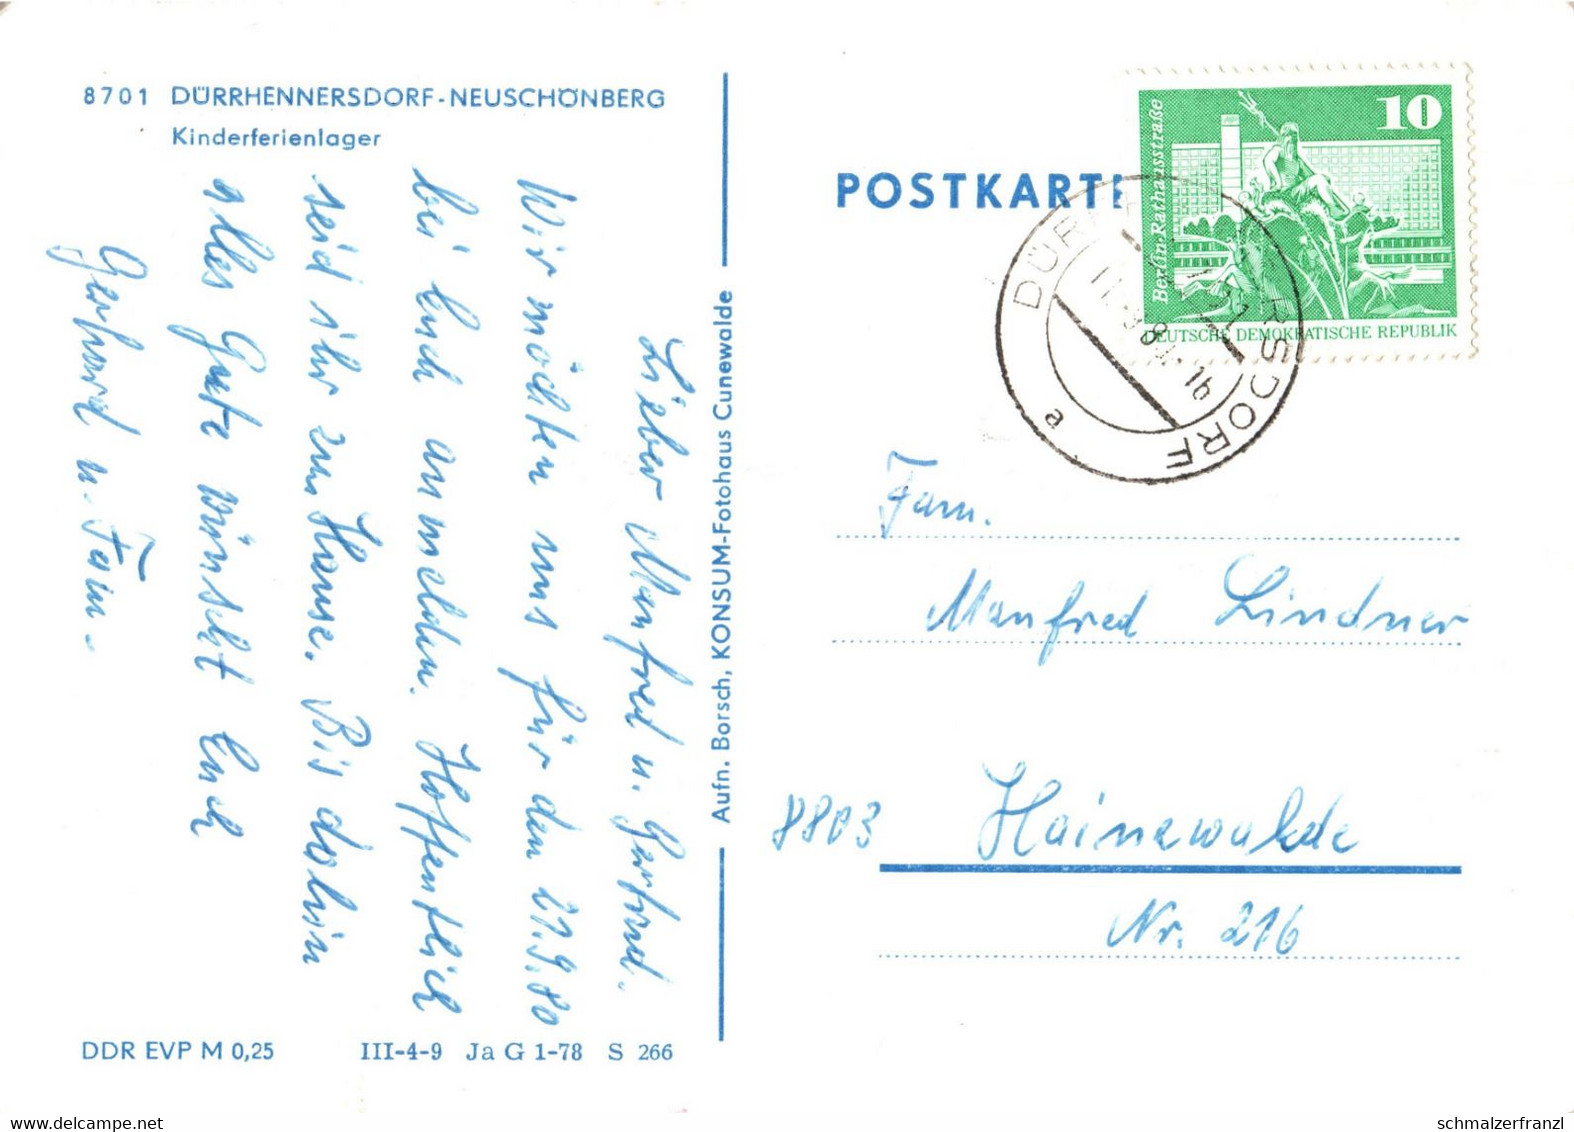 8701 DÜRRHENNERSDORF-NEUSCHÖNBERG
Kinderferienlager
Lieber Manfred u. Gertrud.
Wir möchten uns für den 21.9.80
bei Euch anmelden. Hoffentlich
seid ihr zu Hause. Bis dahin
alles Gute wünscht Euch
Gerhard u. Fam.
Aufn. Borsch, KONSUM-Fotohaus Cunewalde
DDR EVP M 0,25 III-4-9 Ja G 1-78 S 266
POSTKARTE
10
Berlin-Rathausstraße
DEUTSCHE DEMOKRATISCHE REPUBLIK
Fam.
Manfred Lindner
8803 Hainewalde
Nr. 216
delcampe.net
schmalzerfranzl